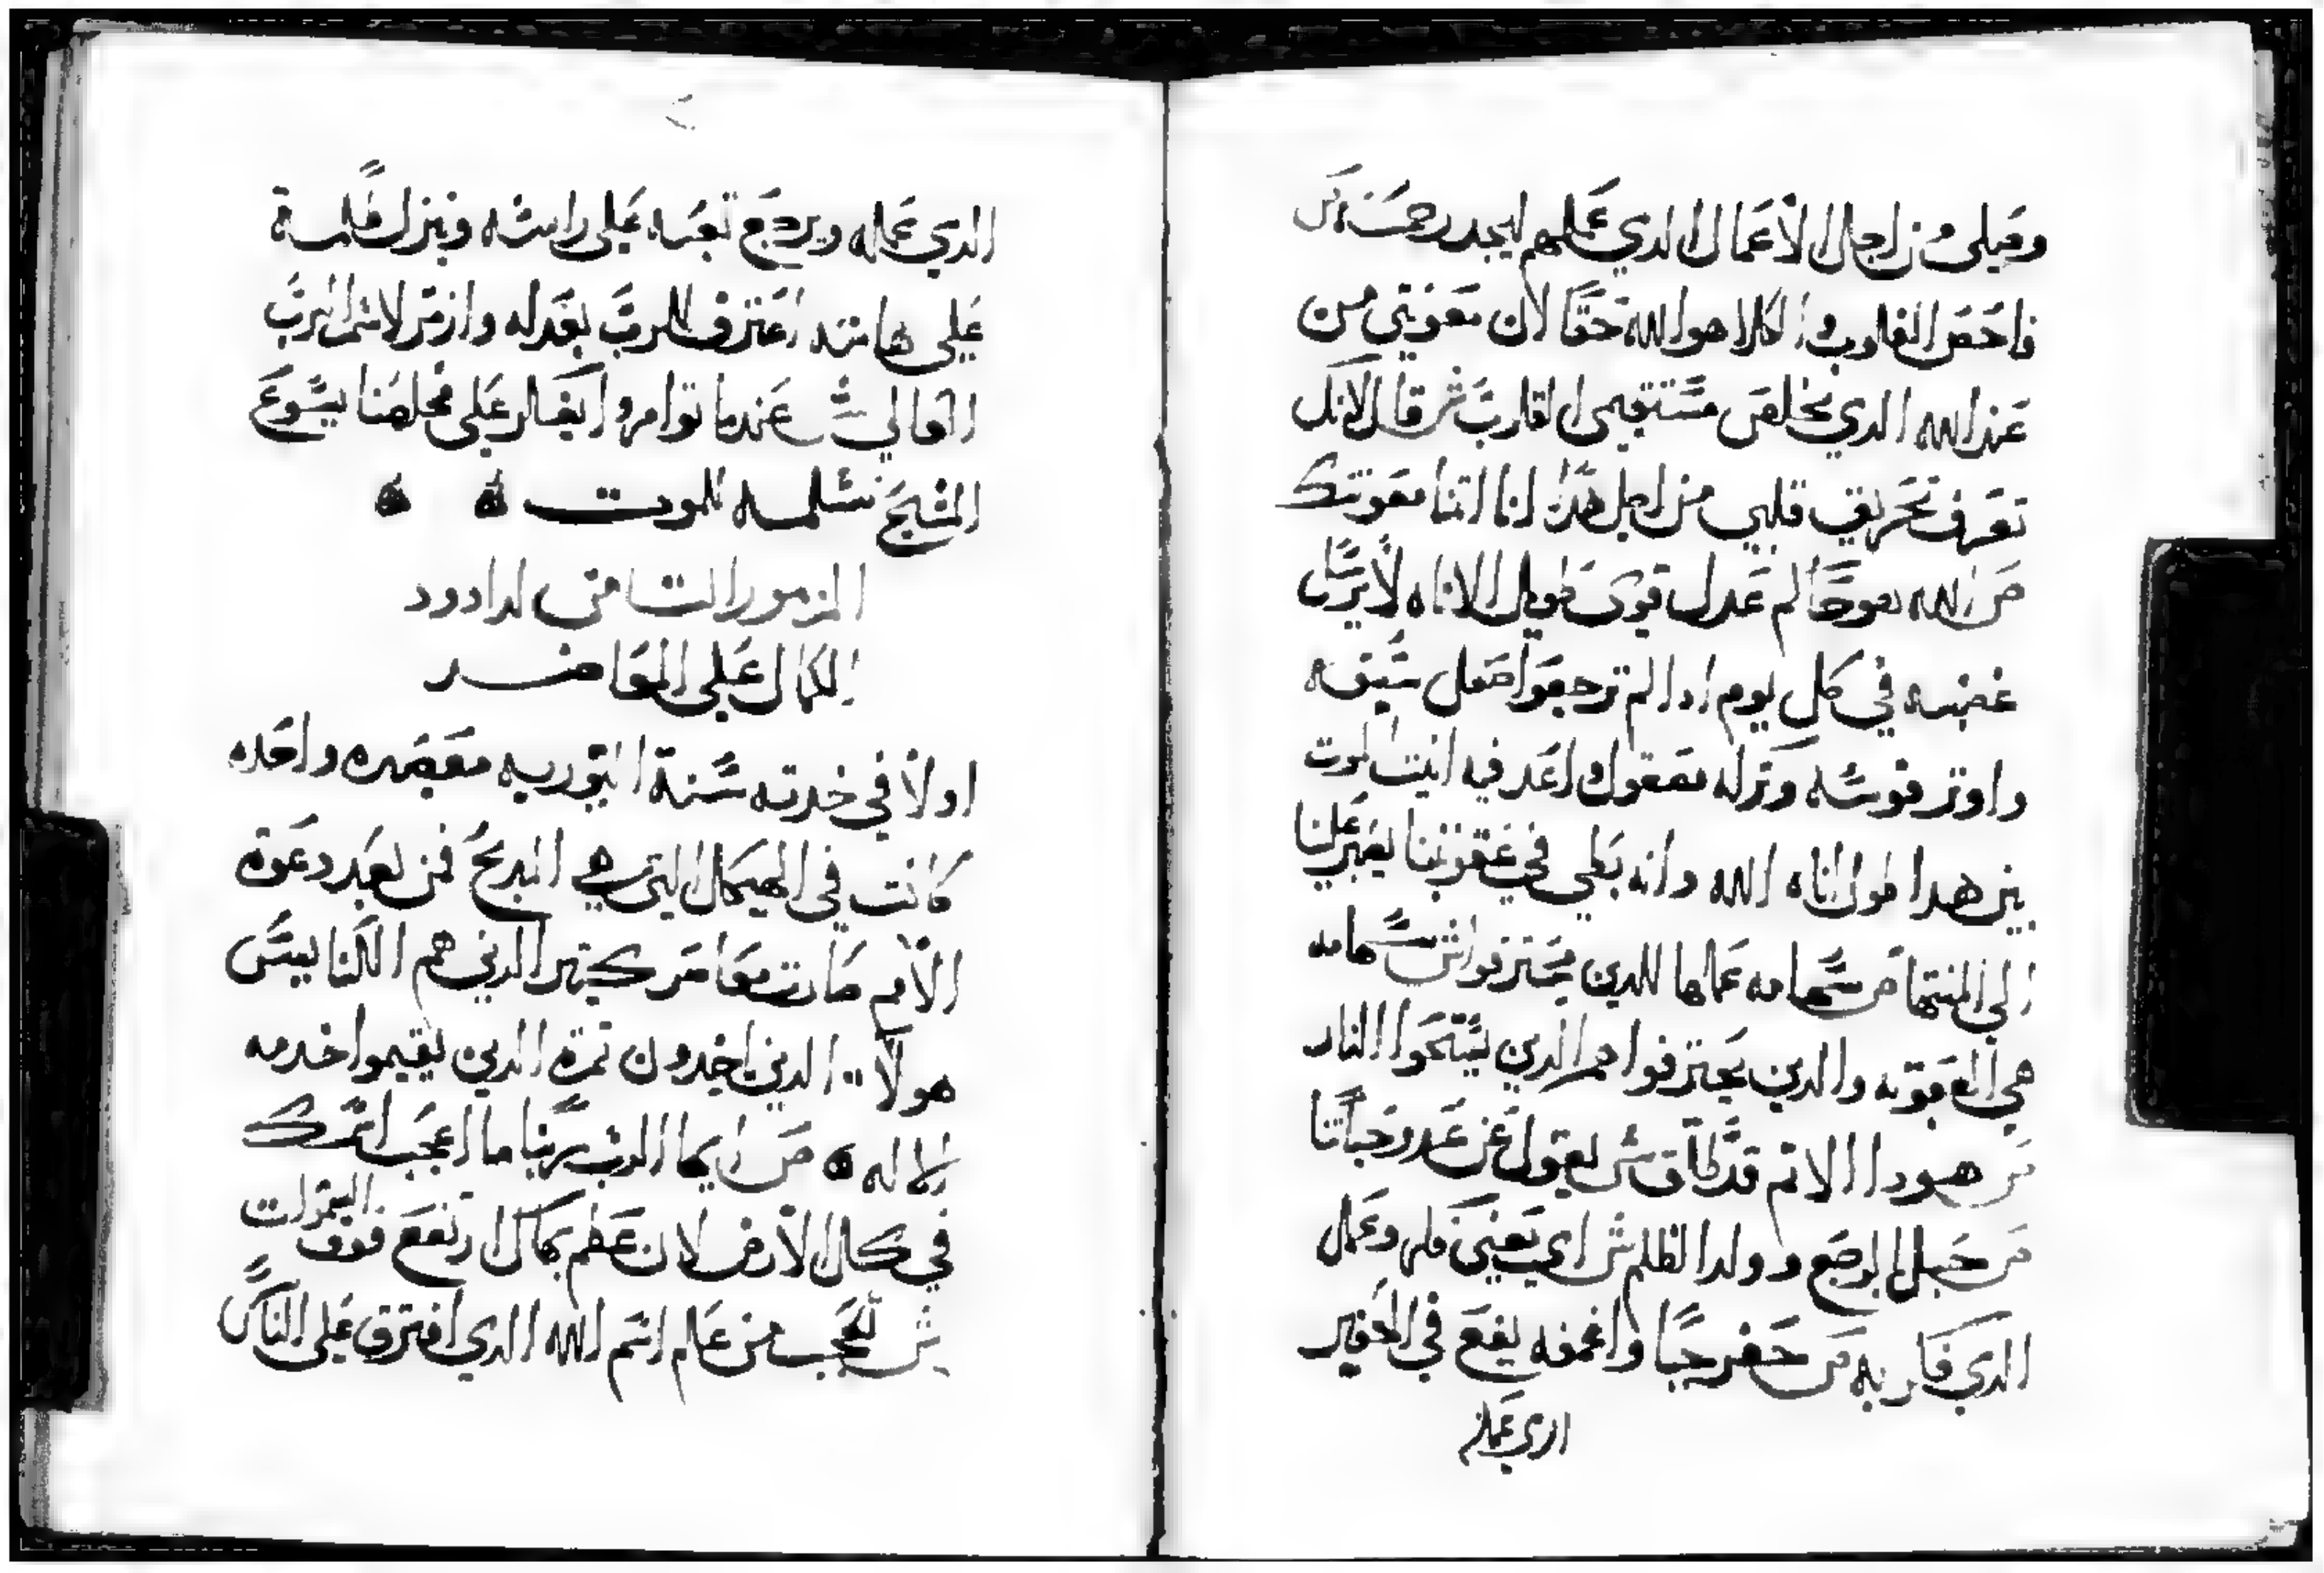 وقيلى من اجل الاعمال الدي عملهم ليجد رحمت
فاحص القلوب والكلا هو الله حقا لان معونتي من
عند الله الدي يخلص مستقيمى القلوب ش قال لانك
تعرف تحريق قلبي من اجل هدا انا اتنا معونتك
ص الله حاكم عدل قوى طويل الاناه لا يرسل
غضبه في كل يوم ادا لم ترجعوا صقل سيفه
واوتر قوسه وتركه مصقول واعد فيه انيت الموت
بين هدا طول اناه الله وانه بطي في عقوبتنا يصبر علينا
الي المنتها ص سهامه عملها للدين يحترقوا ش سهامه
هي العقوبه والدين يحترقوا هم الدين يستحقوا النار
ص هودا الاتم قد طلق ش يقول عن عدو حياتنا
ص حبل الوجع وولد الظلم ش اي يعني فكر وعمل
الدي فكر به ص حفر جبا واعمقه يقع في الحفير
الدي عمله
الدي عمله ويرجع تعبه على راسه وينزل ظلمه
على هامته اعترف للرب بعدله وازمر لاسم الرب
العالي ش عندما توامروا الكفار على مخلصنا يسوع
المسيح نسلمه للموت
المزمور التامن لداود
الكمال على المعاصر
اولا في خدرته سنة التوريه معصره واحده
كانت في الهيكل التي هي المدبح فمن بعد دعوة
الامم صارت معاصر كتير الدين هم الكنايس
هولا الدين ياخدون تمرة الدين يقيموا خدمه
الاله ص ايها الرب ربنا ما اعجب اسمك
في كل الارض لان عظم بهاك ارتفع فوق السموات
ش تعجب من عالم اسم الله الدي افترق على الناس